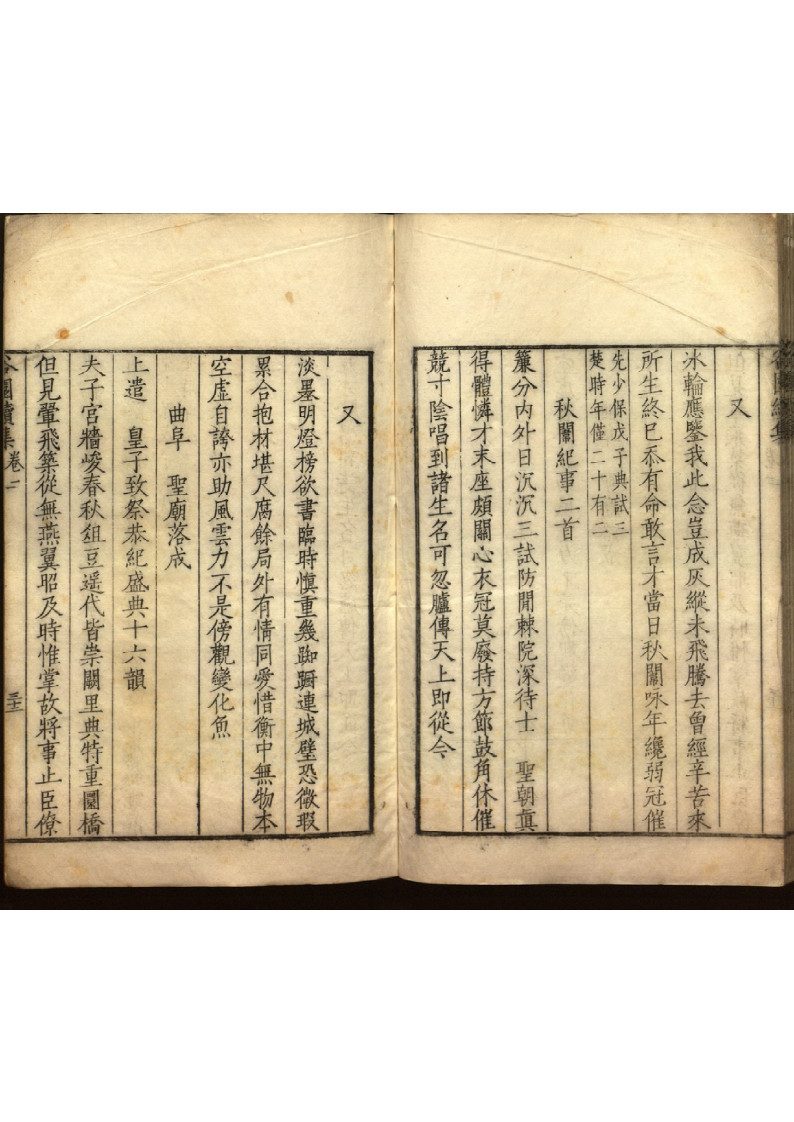 又
冰輪應鑒我此念豈成灰縱未飛騰去曾經辛苦來
所生終已忝有命敢言才當日秋闈咏年纔弱冠催
先少保戊子典試三
楚時年僅二十有二
秋闈紀事二首
簾分内外日沉沉三試防閒棘院深待士　聖朝眞
得體憐才末座頗關心衣冠莫廢持方節鼓角休催
競寸陰唱到諸生名可忽臚傳天上即從今
又
淡墨明燈榜欲書臨時愼重幾踟蹰連城璧恐微瑕
累合抱材堪尺腐餘局外有情同愛惜衡中無物本
空虛自誇亦助風雲力不是傍觀變化魚
曲阜　聖廟落成
上遣　皇子致祭恭紀盛典十六韻
夫子宮牆峻春秋俎豆遥代皆崇闕里典特重圜橋
但見翬飛築從無燕翼昭及時惟掌故將事止臣僚
谷園續集　卷一　三十二